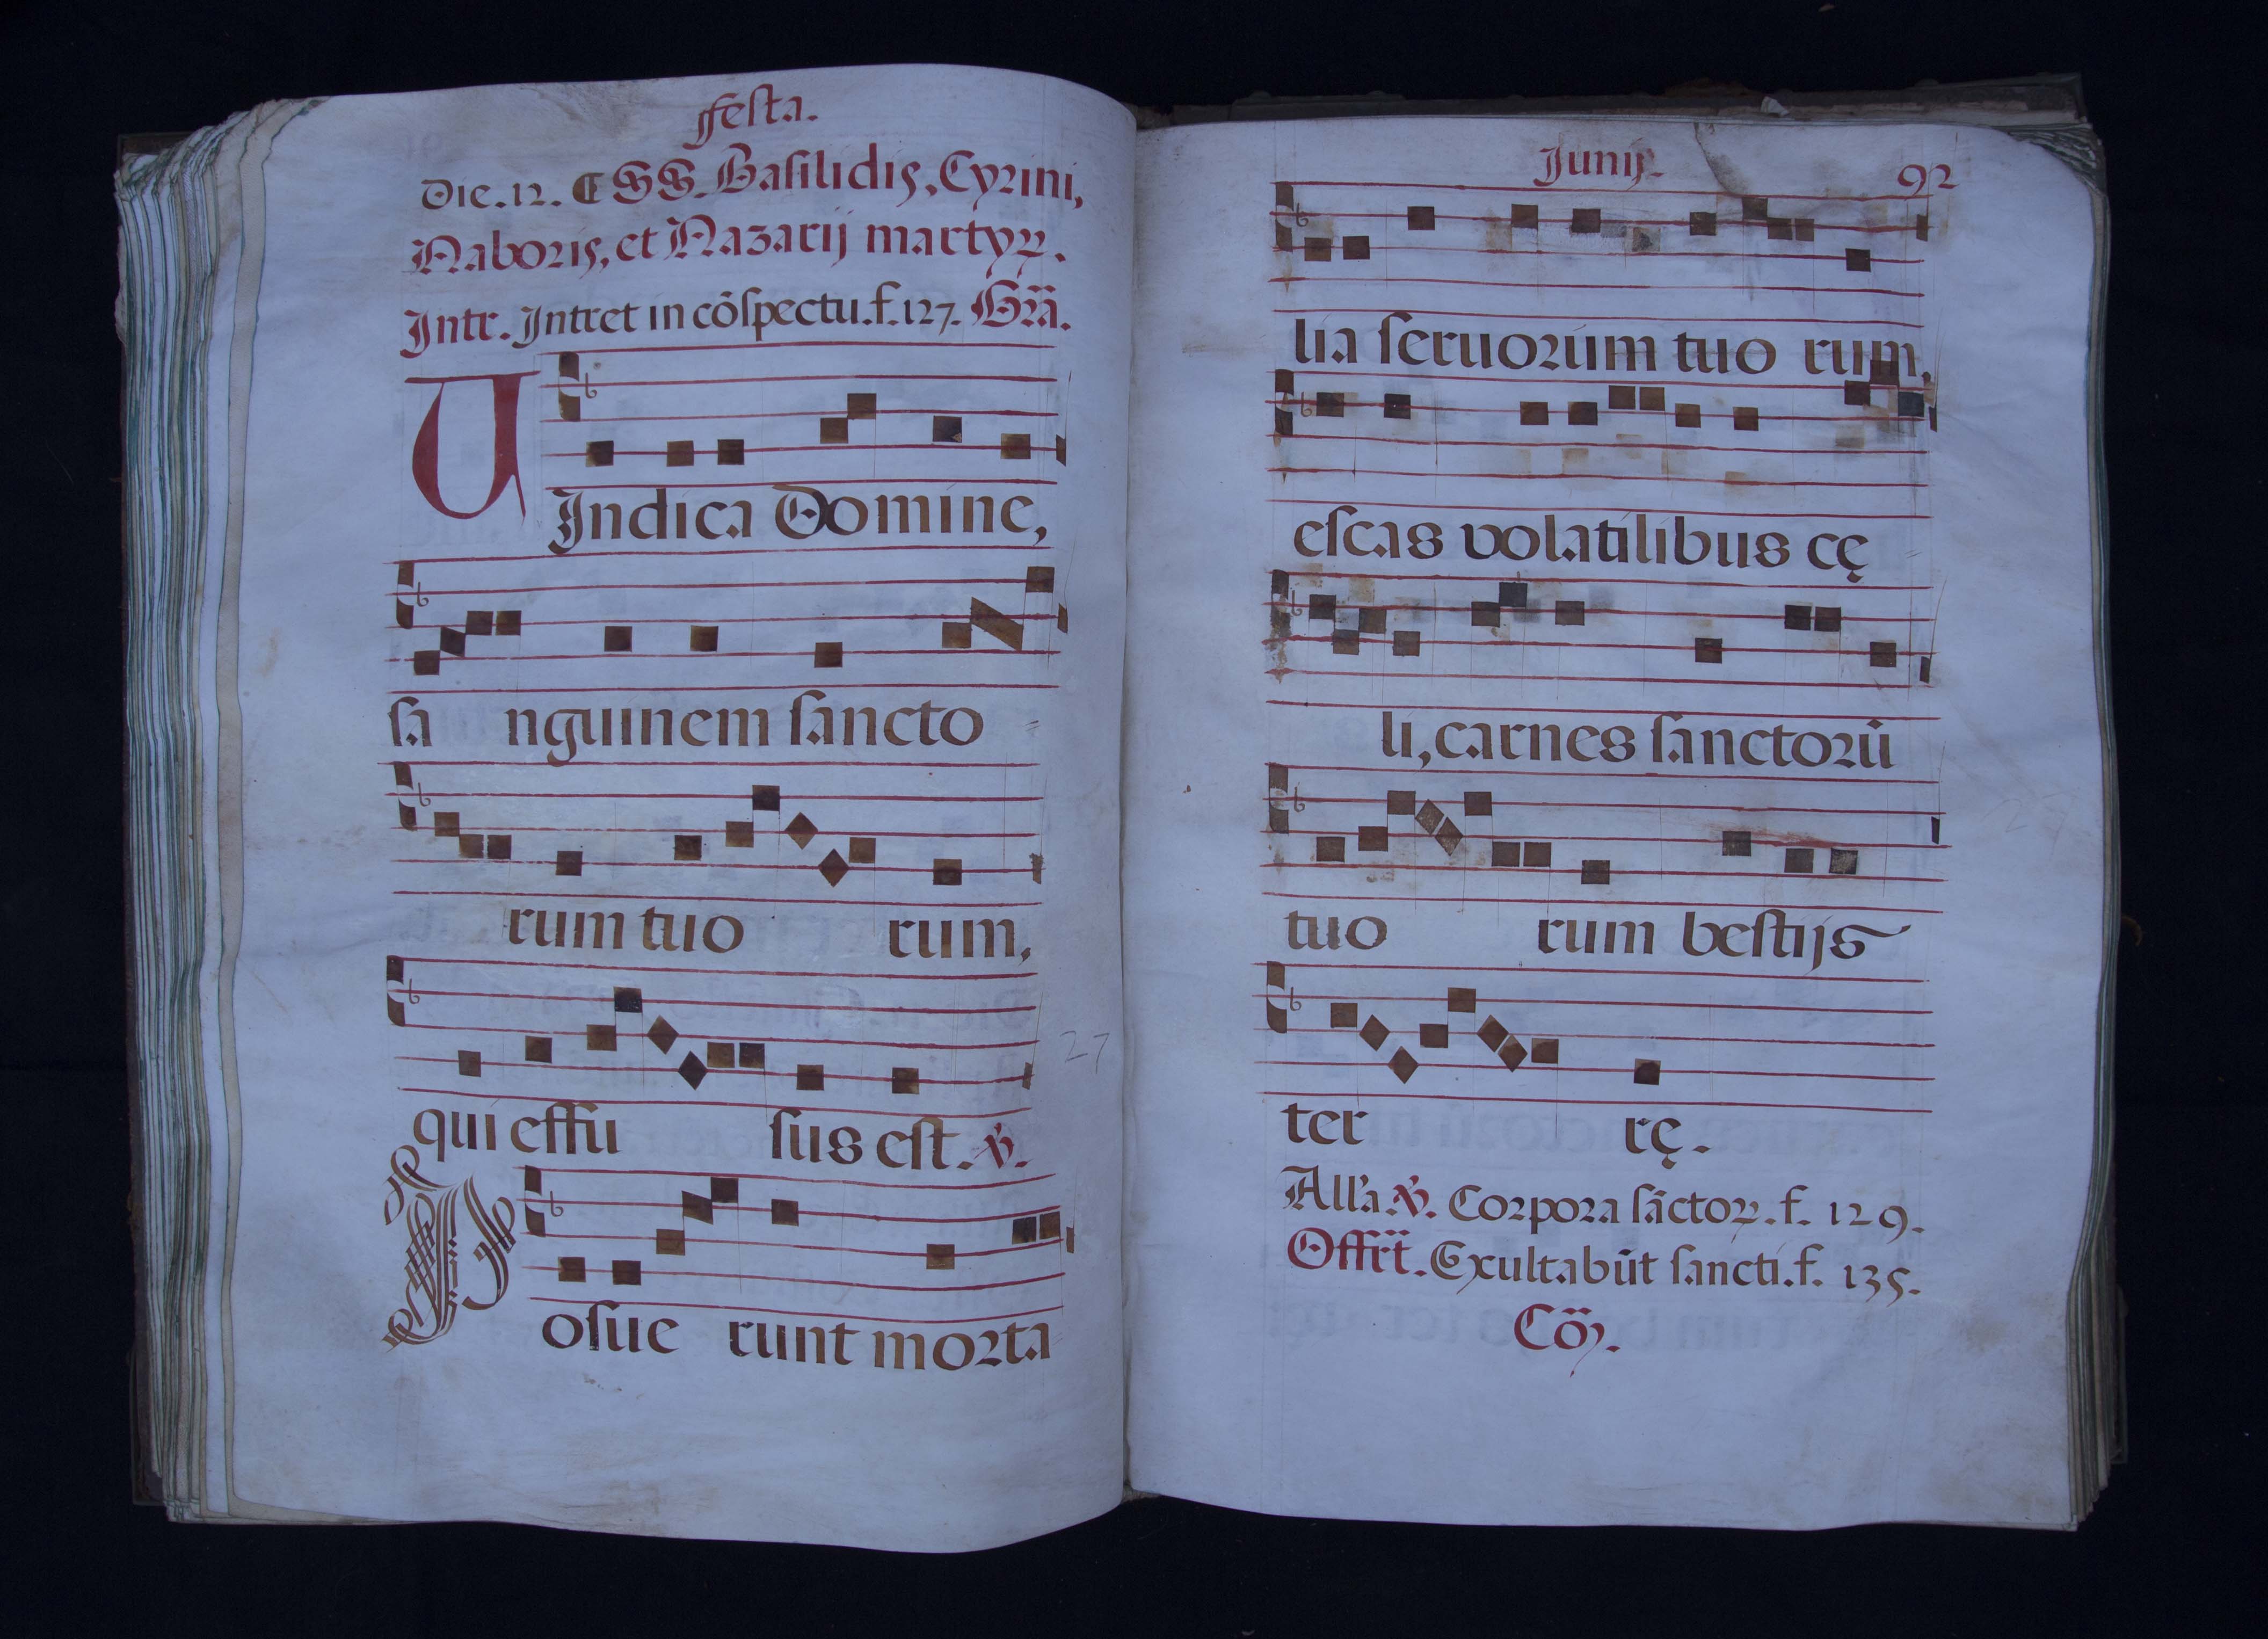 ffesta.
Die.12. ¶ SS. Basilidis, Cyrini,
Naboris, et Nazarij martyꝝ.
Intr. Intret in cõspectu.f.127. Grã.
VIndica Domine,
sa nguinem sancto =
rum tuo rum,
qui effu sus est. ℣.
Posue runt morta
27
Junij.
92
lia seruorum tuo rum,
escas volatilibus cę =
li, carnes sanctorũ
tuo rum bestijs
ter rę.
All'a ℣. Corpora sãctoꝝ. f. 129.
Offrt. Exultabũt sancti. f. 135.
Cõ.